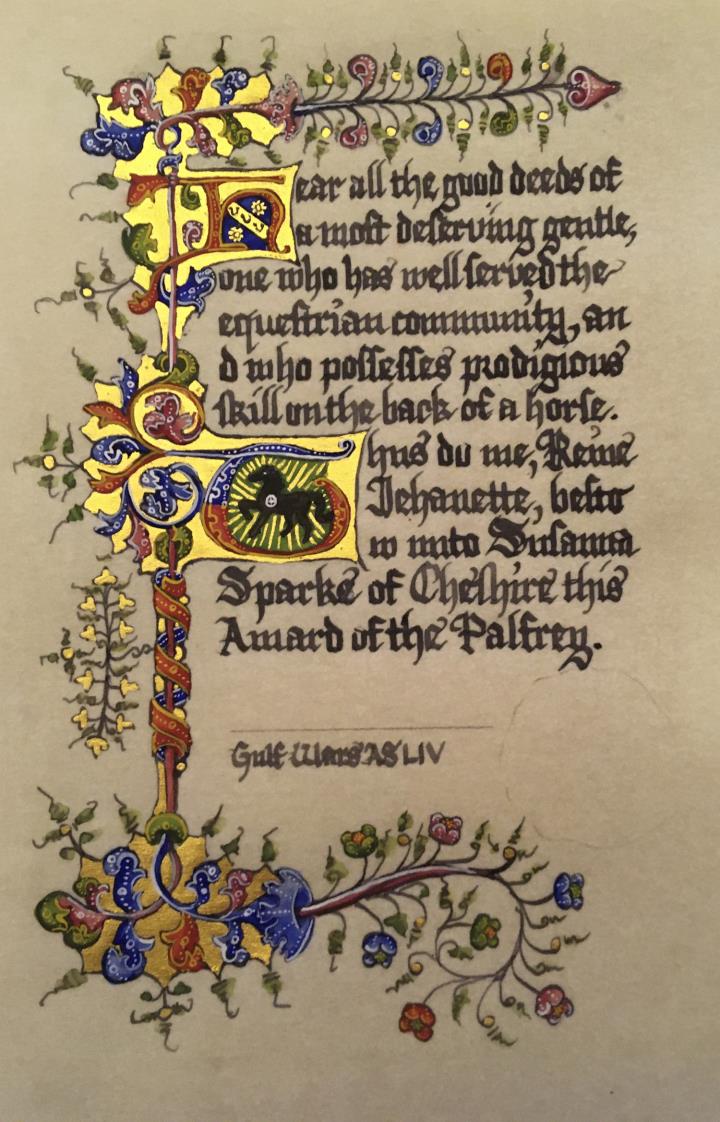 Hear all the good deeds of
a most deserving gentle,
one who has well served the
equestrian community, an
d who possesses prodigious
skill on the back of a horse.
Thus do we, Reine
Jehanette, besto
w unto Susanna
Sparke of Cheshire this
Award of the Palfrey.
Gulf Wars AS LIV